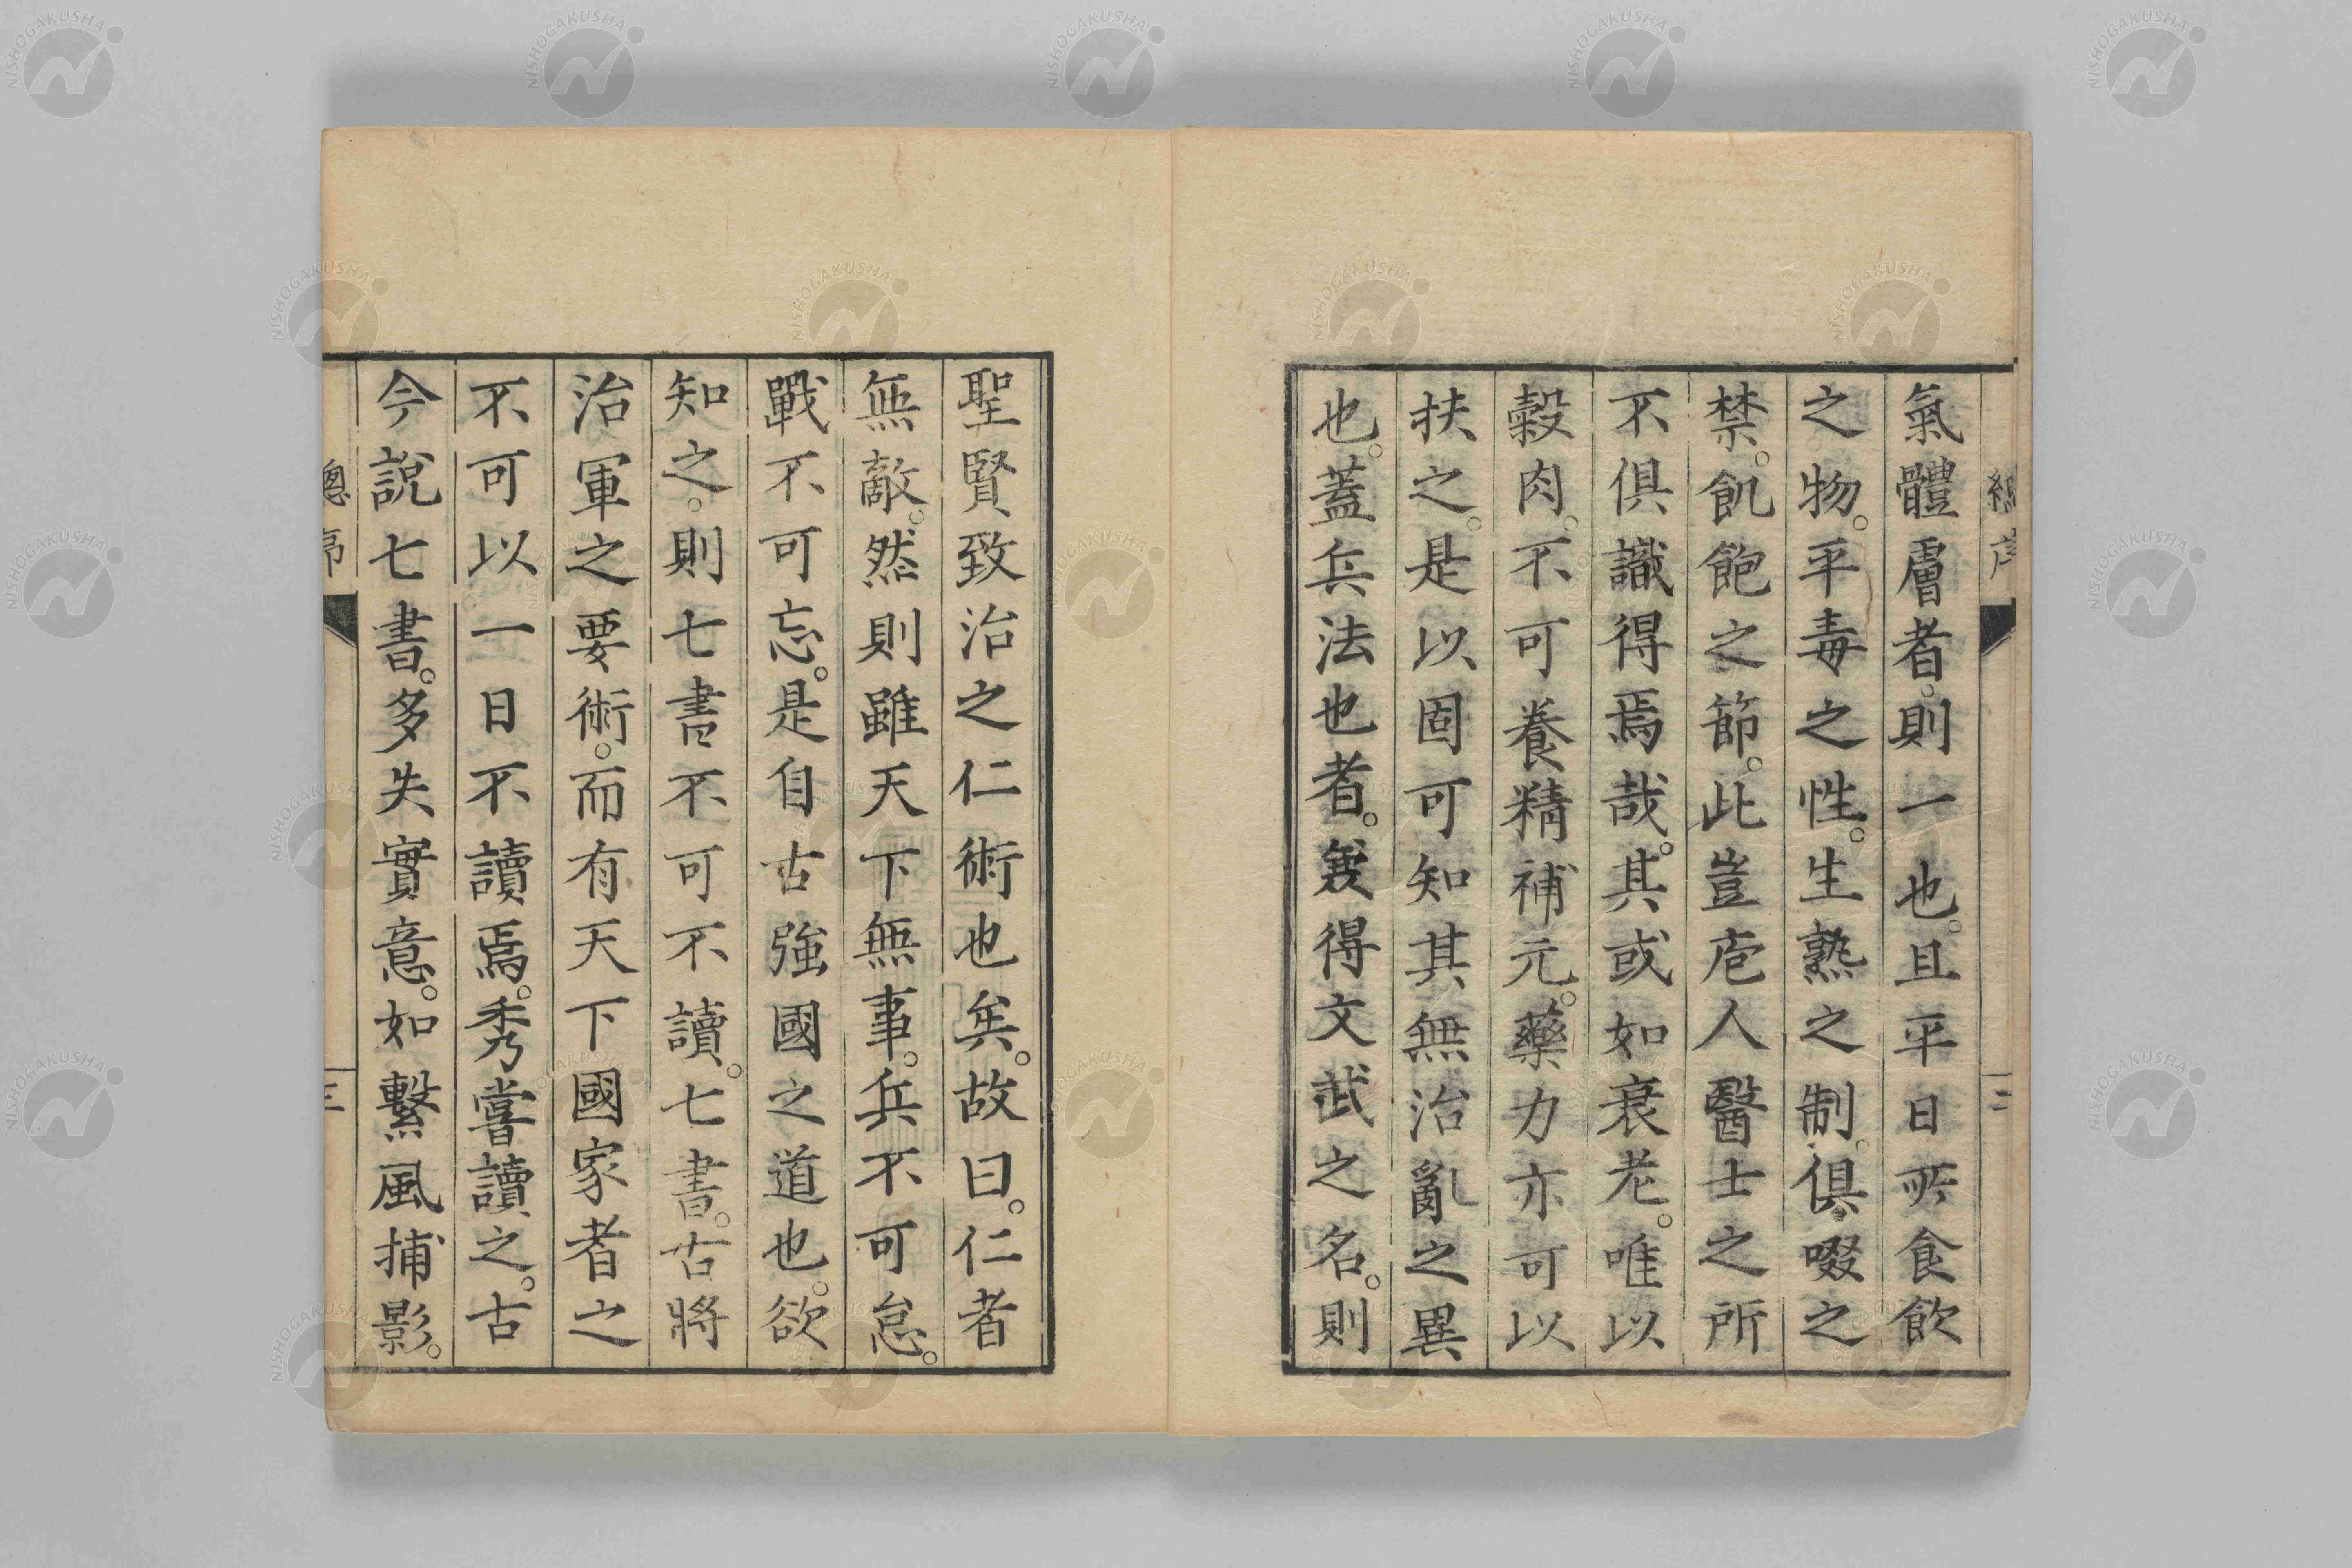 總序
二
氣體膚者。則一也。且平日所食飲
之物。平毒之性。生熟之制。俱啜之
禁。飢飽之節。此豈庖人醫士之所
不俱識得焉哉。其或如衰老。唯以
穀肉。不可養精補元。藥力亦可以
扶之。是以固可知其無治亂之異
也。蓋兵法也者。爰得文武之名。則
聖賢致治之仁術也矣。故曰。仁者
無敵。然則雖天下無事。兵不可怠。
戰不可忘。是自古強國之道也。欲
知之。則七書不可不讀。七書。古將
治軍之要術。而有天下國家者之
不可以一日不讀焉。秀嘗讀之。古
今說七書。多失實意。如繫風捕影。
總序
三
NISHOGAKUSHA